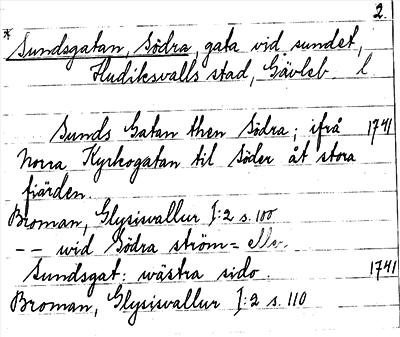 2.
* Sundsgatan, Södra, gata vid sundet,
Hudiksvalls stad, Gävleb l
Sunds Gatan then Södra; ifrå 1741
Norra Kyrkogatan til Söder åt stora
fiärden.
Broman, Glysisvallur I:2 s. 100
-- wid Södra ström= ell.
Sundsgat: wästra sido. 1741
Broman, Glysisvallur I:2 s. 110